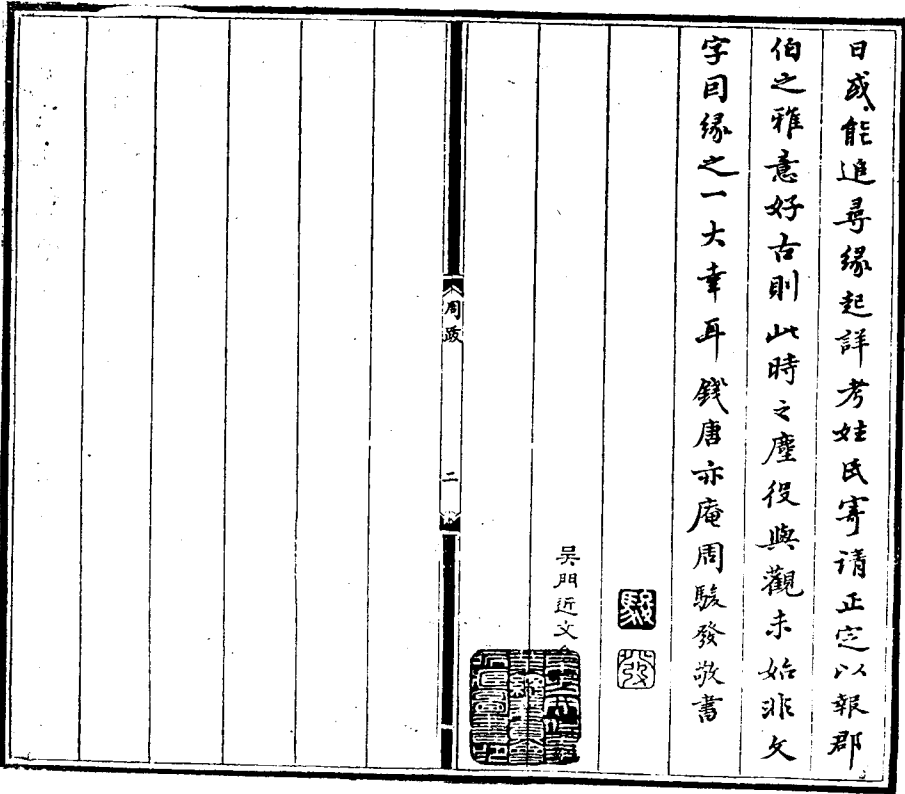 日或能追尋緣起詳考姓氏寄請正定以報郡
伯之雅意好古則此時之塵役與觀未始非文
字因緣之一大幸耳錢唐亦庵周駿發敬書
駿
發
吳門近文
周跋
二